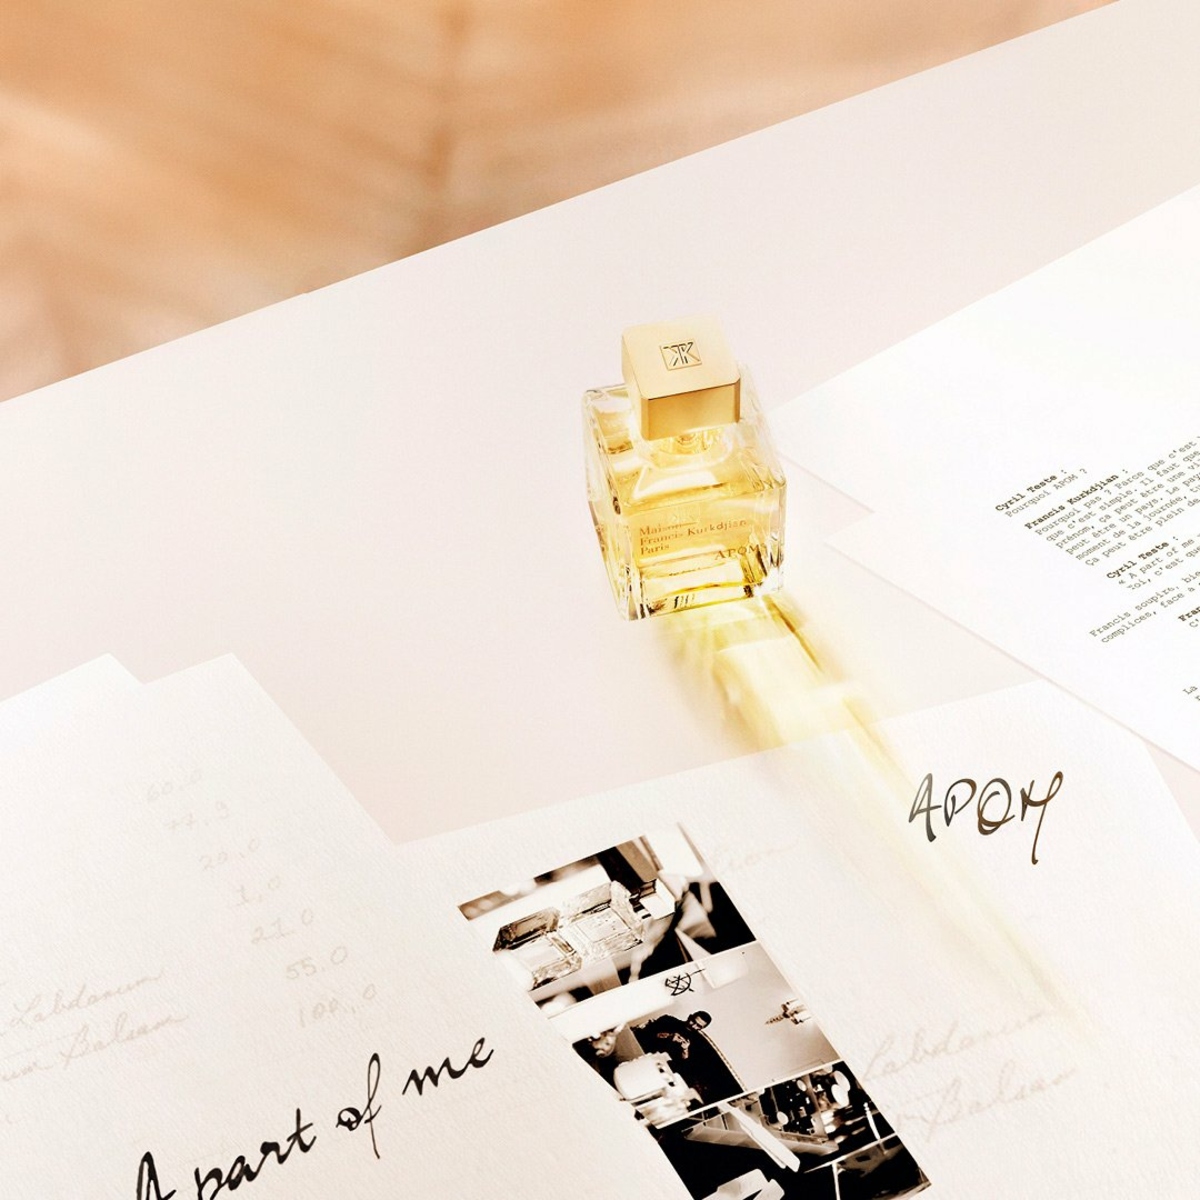 Maison
Francis Kurkdjian
Paris
APOM
Cyril Teste :
Pourquoi APOM ?
Francis Kurkdjian :
Pourquoi pas ? Parce que c'est
que c'est simple. Il faut que
prénom, ça peut être une
peut être un pays. Le
moment de la journée,
ça peut être plein de
Cyril Teste :
« A part of me
toi, c'est
Francis soupire,
complices, face à
La
APOM
60.0
20.0
1.0
21.0
55.0
100.0
Labdanum
Balsam
Labdanum
Balsam
A part of me